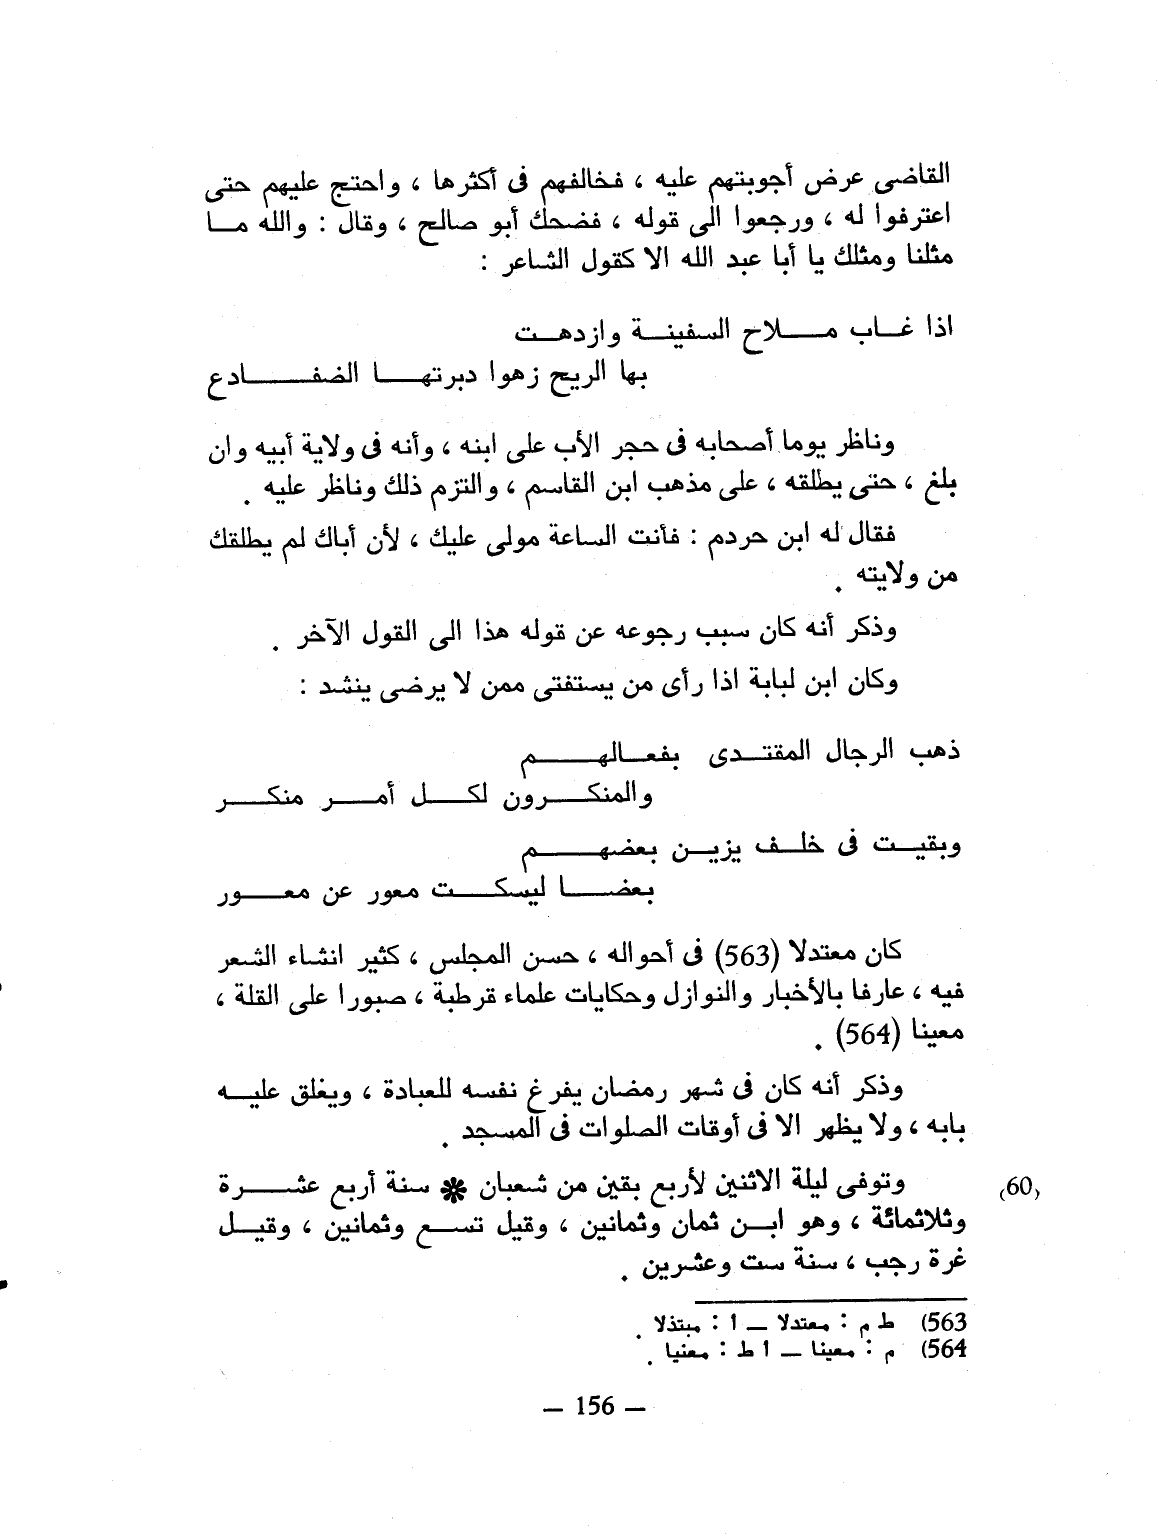 القاضى عرض أجوبتهم عليه ، فخالفهم فى أكثرها ، واحتج عليهم حتى
اعترفوا له ، ورجعوا الى قوله ، فضحك أبو صالح ، وقال : والله مـا
مثلنا ومثلك يا أبا عبد الله الا كقول الشاعر :
اذا غـاب مـلاح السفينـة وازدهـت
بها الريح زهوا دبرتهـا الضفـادع
وناظر يوما أصحابه فى حجر الأب على ابنه ، وأنه فى ولاية أبيه وان
بلغ ، حتى يطلقه ، على مذهب ابن القاسم ، والتزم ذلك وناظر عليه .
فقال له ابن حردم : فأنت الساعة مولى عليك ، لأن أباك لم يطلقك
من ولايته .
وذكر أنه كان سبب رجوعه عن قوله هذا الى القول الآخر .
وكان ابن لبابة اذا رأى من يستفتى ممن لا يرضى ينشد :
ذهب الرجال المقتـدى بفعـالهـم
والمنكـرون لكـل أمـر منكـر
وبقيـت فى خلـف يزيـن بعضهـم
بعضـا ليسكـت معور عن معـور
كان معتدلا (563) فى أحواله ، حسن المجلس ، كثير انشاء الشعر
فيه ، عارفا بالأخبار والنوازل وحكايات علماء قرطبة ، صبورا على القلة ،
معينا (564) .
وذكر أنه كان فى شهر رمضان يفرغ نفسه للعبادة ، ويغلق عليـه
بابه ، ولا يظهر الا فى أوقات الصلوات فى المسجد .
(60) وتوفى ليلة الاثنين لأربع بقين من شعبان ✽ سنة أربع عشـرة
وثلاثمائة ، وهو ابـن ثمان وثمانين ، وقيل تسـع وثمانين ، وقيـل
غرة رجب ، سنة ست وعشرين .
563) ط م : معتدلا ــ ا : مبتذلا .
564) م : معينا ــ ا ط : معنيا .
— 156 —